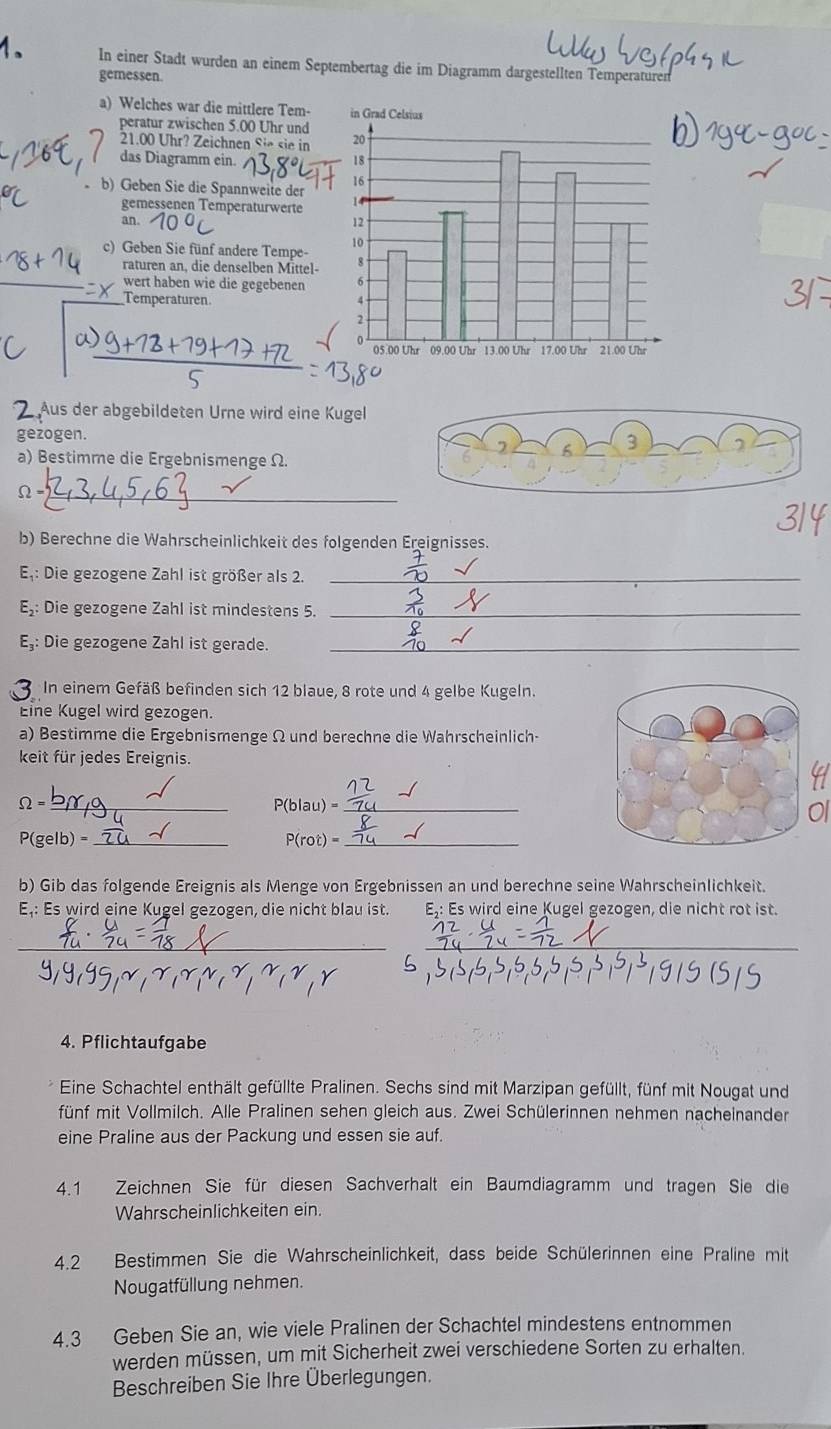 1.
In einer Stadt wurden an einem Septembertag die im Diagramm dargestellten Temperaturen
gemessen.
a) Welches war die mittlere Tem-
peratur zwischen 5.00 Uhr und
21.00 Uhr? Zeichnen Sie sie in
das Diagramm ein. 13,8°C
b) Geben Sie die Spannweite der
gemessenen Temperaturwerte
an. 10°C
c) Geben Sie fünf andere Tempe-
raturen an, die denselben Mittel-
wert haben wie die gegebenen
Temperaturen.
18 + 14
= x
in Grad Celsius
20
18
16
14
12
10
8
6
4
2
0
05.00 Uhr 09.00 Uhr 13.00 Uhr 17.00 Uhr 21.00 Uhr
b) 19°C - 9°C =
3/7
a) 9+13+19+17+12
5
= 13,80
2. Aus der abgebildeten Urne wird eine Kugel
gezogen.
a) Bestimme die Ergebnismenge Ω.
Ω = {2,3,4,5,6}
2 6 3 2
6 4 2 5
3/4
b) Berechne die Wahrscheinlichkeit des folgenden Ereignisses.
E₁: Die gezogene Zahl ist größer als 2. 7/10
E₂: Die gezogene Zahl ist mindestens 5. 3/10
E₃: Die gezogene Zahl ist gerade. 8/10
3. In einem Gefäß befinden sich 12 blaue, 8 rote und 4 gelbe Kugeln.
Eine Kugel wird gezogen.
a) Bestimme die Ergebnismenge Ω und berechne die Wahrscheinlich-
keit für jedes Ereignis.
Ω = b,r,g P(blau) = 12/24
P(gelb) = 4/24 P(rot) = 8/24
b) Gib das folgende Ereignis als Menge von Ergebnissen an und berechne seine Wahrscheinlichkeit.
E₁: Es wird eine Kugel gezogen, die nicht blau ist. E₂: Es wird eine Kugel gezogen, die nicht rot ist.
8/24 · 4/24 = 1/18 12/24 · 4/24 = 1/12
4. Pflichtaufgabe
Eine Schachtel enthält gefüllte Pralinen. Sechs sind mit Marzipan gefüllt, fünf mit Nougat und
fünf mit Vollmilch. Alle Pralinen sehen gleich aus. Zwei Schülerinnen nehmen nacheinander
eine Praline aus der Packung und essen sie auf.
4.1 Zeichnen Sie für diesen Sachverhalt ein Baumdiagramm und tragen Sie die
Wahrscheinlichkeiten ein.
4.2 Bestimmen Sie die Wahrscheinlichkeit, dass beide Schülerinnen eine Praline mit
Nougatfüllung nehmen.
4.3 Geben Sie an, wie viele Pralinen der Schachtel mindestens entnommen
werden müssen, um mit Sicherheit zwei verschiedene Sorten zu erhalten.
Beschreiben Sie Ihre Überlegungen.